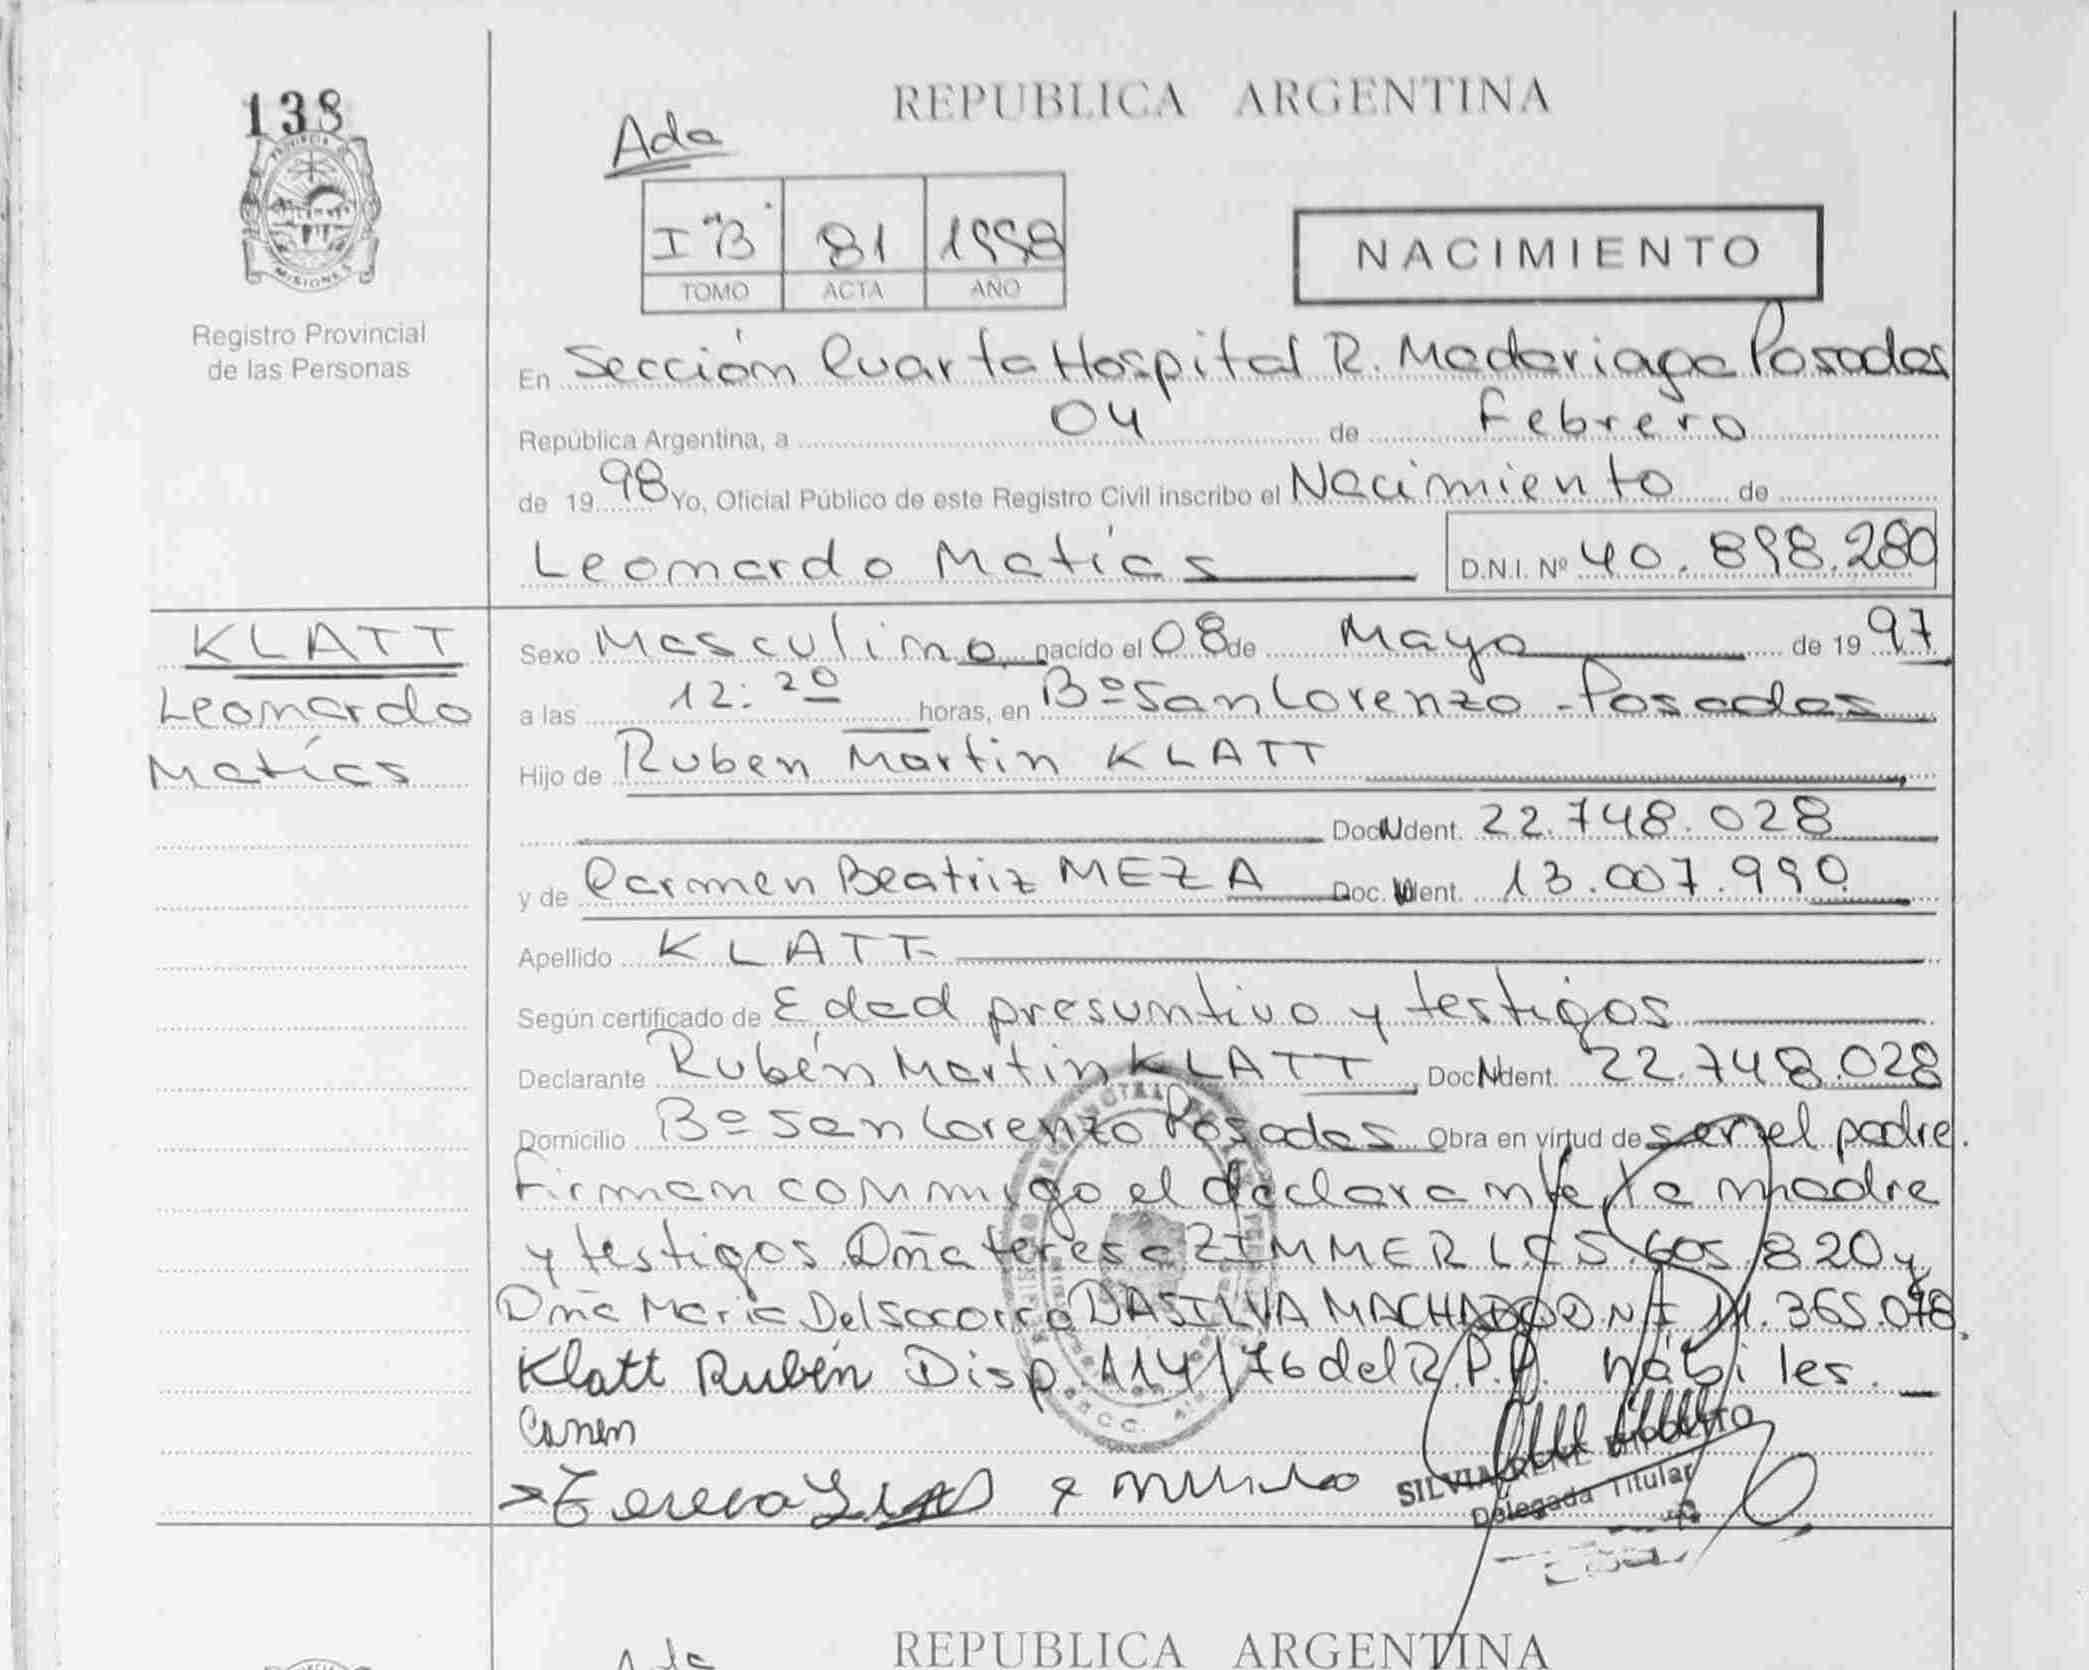 138
PROVINCIA DE
MISIONES
Registro Provincial
de las Personas
REPUBLICA ARGENTINA
Ada
I "B" 81 1998
TOMO ACTA AÑO
NACIMIENTO
En Sección Cuarta Hospital R. Madariaga Posadas
República Argentina, a 04 de Febrero
de 1998 Yo, Oficial Público de este Registro Civil inscribo el Nacimiento de
Leonardo Matías D.N.I. Nº 40.898.280
KLATT
Leonardo
Matías
Sexo Masculino nacido el 08 de Mayo de 1997
a las 12:20 horas, en Bº San Lorenzo - Posadas
Hijo de Ruben Martin KLATT
Doc. Ident. 22.748.028
y de Carmen Beatriz MEZA Doc. Ident. 13.007.990
Apellido KLATT
Según certificado de Edad presuntivo y testigos
Declarante Rubén Martin KLATT Doc. Ident. 22.748.028
Domicilio Bº San Lorenzo Posadas Obra en virtud de ser el padre.
Firman conmigo el declarante, la madre
y testigos Dña teresa ZIMMER L.C 5.605.820 y
Dña María Del socorro DASILVA MACHADO D.N.I 11.365.078.
Klatt Rubén Disp 114/76 del R.P.P. hábiles.
Carmen
Teresa
SILVIA RENE
Delegada Titular
REPUBLICA ARGENTINA
Ada